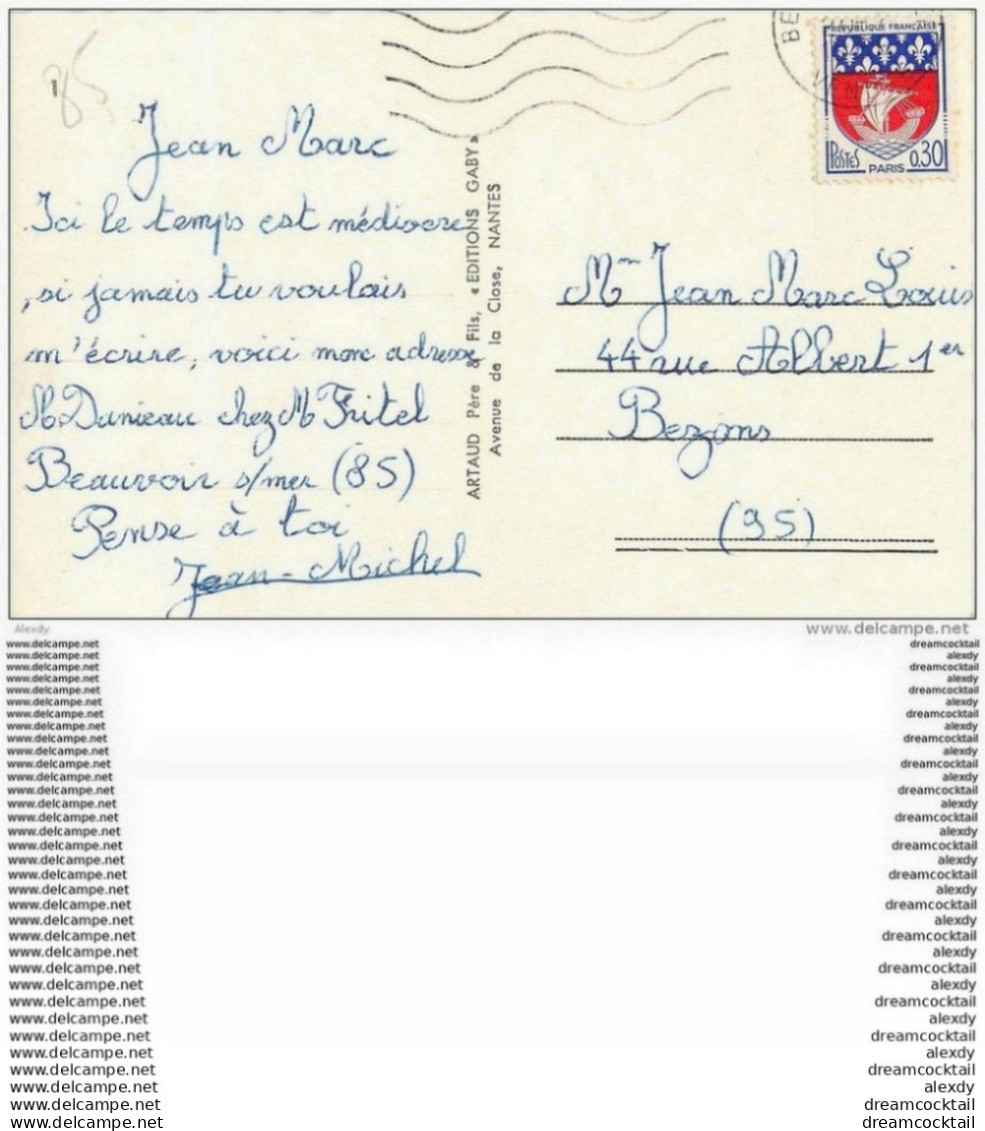 85
Jean Marc
Ici le temps est médiocre
, si jamais tu voulais
m'écrire, voici mon adresse
M Danieau chez M Fritel
Beauvoir s/mer (85)
Pense à toi
Jean-Michel
ARTAUD Père & Fils, « EDITIONS GABY »
Avenue de la Close, NANTES
BE
REPUBLIQUE FRANÇAISE
POSTES
0,30
PARIS
Mm Jean Marc Louis
44 rue Albert 1er
Bezons
(95)
Alexdy
www.delcampe.net
www.delcampe.net dreamcocktail
www.delcampe.net alexdy
www.delcampe.net dreamcocktail
www.delcampe.net alexdy
www.delcampe.net dreamcocktail
www.delcampe.net alexdy
www.delcampe.net dreamcocktail
www.delcampe.net alexdy
www.delcampe.net dreamcocktail
www.delcampe.net alexdy
www.delcampe.net dreamcocktail
www.delcampe.net alexdy
www.delcampe.net dreamcocktail
www.delcampe.net alexdy
www.delcampe.net dreamcocktail
www.delcampe.net alexdy
www.delcampe.net dreamcocktail
www.delcampe.net alexdy
www.delcampe.net dreamcocktail
www.delcampe.net alexdy
www.delcampe.net dreamcocktail
www.delcampe.net alexdy
www.delcampe.net dreamcocktail
www.delcampe.net alexdy
www.delcampe.net dreamcocktail
www.delcampe.net alexdy
www.delcampe.net dreamcocktail
www.delcampe.net alexdy
www.delcampe.net dreamcocktail
www.delcampe.net alexdy
www.delcampe.net dreamcocktail
www.delcampe.net alexdy
www.delcampe.net dreamcocktail
www.delcampe.net dreamcocktail